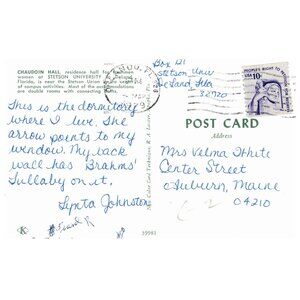 CHAUDOIN HALL, residence hall for freshmen
women at STETSON UNIVERSITY in DeLand,
Florida, is near the Stetson Union, the center
of campus activities. Most of the accommodations
are double rooms with connecting baths.
This is the dormitory
where I live. The
arrow points to my
window. My back
wall has Brahms'
Lullaby on it.
Lynta Johnston
Box 121
Stetson Univ
DeLand, Fla
32720
USA 10c
POST CARD
Address
Mrs Velma White
Center Street
Auburn, Maine
04210
K